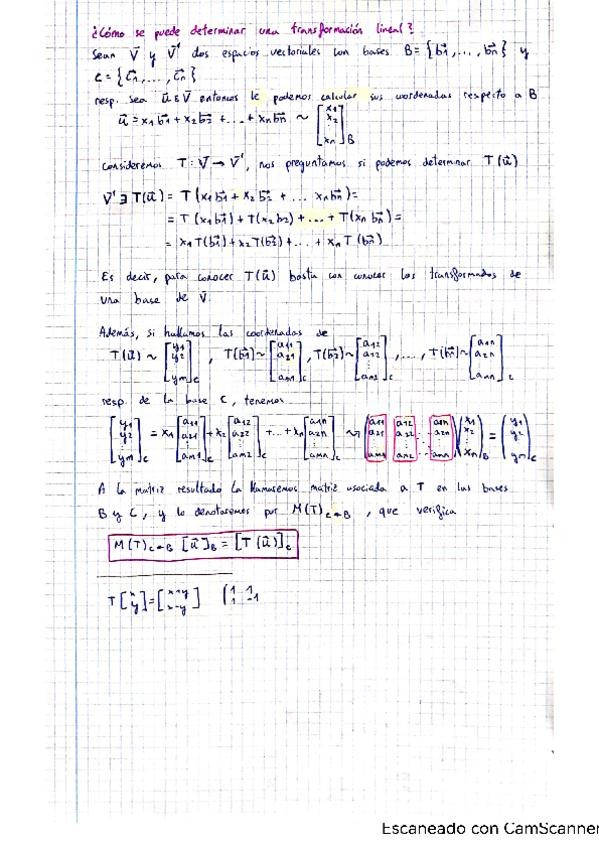 ¿Cómo se puede determinar una transformación lineal?
Sean V⃗ y V⃗' dos espacios vectoriales con bases B = {b⃗1, ..., b⃗n} y
C = {c⃗1, ..., c⃗n}
resp. Sea u⃗ ∈ V⃗ entonces le podemos calcular sus coordenadas respecto a B
u⃗ = x1 b⃗1 + x2 b⃗2 + ... + xn b⃗n ~ [x1 x2 ⋮ xn]B
Consideremos T: V⃗ → V⃗', nos preguntamos si podemos determinar T(u⃗)
V⃗' ∋ T(u⃗) = T(x1 b⃗1 + x2 b⃗2 + ... xn b⃗n) =
= T(x1 b⃗1) + T(x2 b⃗2) + ... + T(xn b⃗n) =
= x1 T(b⃗1) + x2 T(b⃗2) + ... + xn T(b⃗n)
Es decir, para conocer T(u⃗) basta con conocer los transformados de
una base de V⃗.
Además, si hallamos las coordenadas de
T(u⃗) ~ [y1 y2 ⋮ ym]C , T(b⃗1) ~ [a11 a21 ⋮ am1]C , T(b⃗2) ~ [a12 a22 ⋮ am2]C , ..., T(b⃗n) ~ [a1n a2n ⋮ amn]C
resp. de la base C, tenemos
[y1 y2 ⋮ ym]C = x1 [a11 a21 ⋮ am1]C + x2 [a12 a22 ⋮ am2]C + ... + xn [a1n a2n ⋮ amn]C ⇝ (a11 a12 ... a1n a21 a22 ... a2n ⋮ am1 am2 ... amn) (x1 x2 ⋮ xn)B = (y1 y2 ⋮ ym)C
A la matriz resultado la llamaremos matriz asociada a T en las bases
B y C, y lo denotaremos por M(T)C←B , que verifica
M(T)C←B [u⃗]B = [T(u⃗)]C
T[x y] = [x+y x-y] (1 1 1 -1
Escaneado con CamScanner